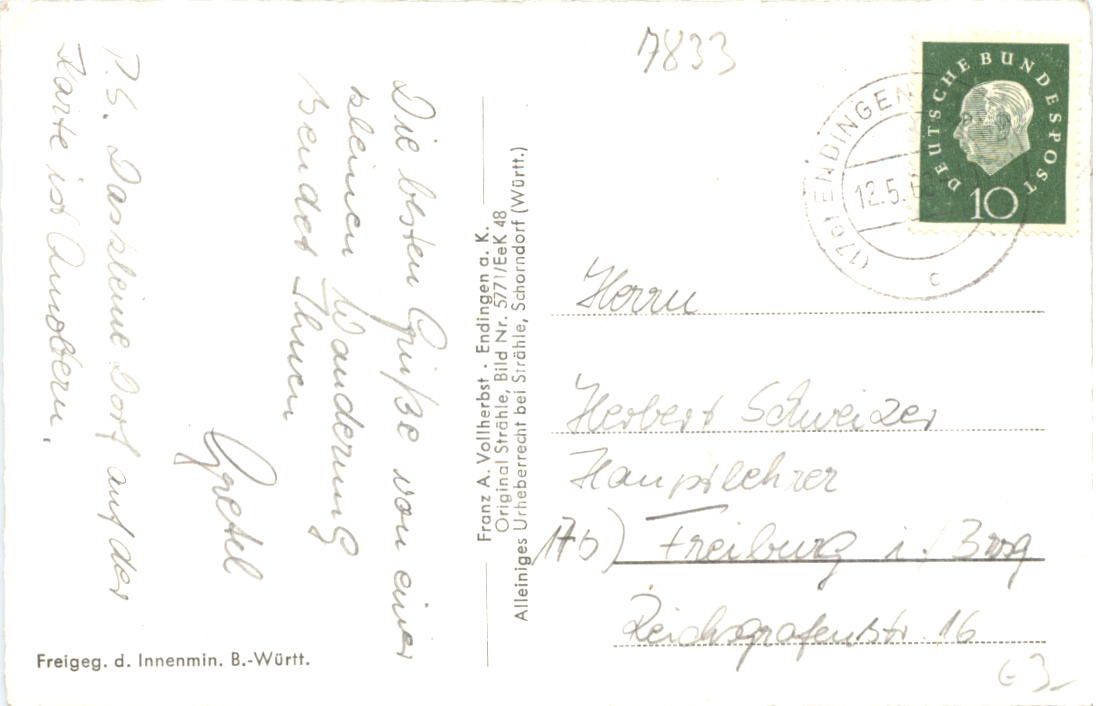 7833
DEUTSCHE BUNDESPOST
10
(17b) ENDINGEN
12.5.60
c
Die besten Grüße von einer
kleinen Wanderung
sendet Ihnen
Gretel
P.S. Das kleine Dorf auf der
Karte ist Amoltern.
Freigeg. d. Innenmin. B.-Württ.
Franz A. Vollherbst · Endingen a. K.
Original Strähle, Bild Nr. 5771/EeK 48
Alleiniges Urheberrecht bei Strähle, Schorndorf (Württ.)
Herrn
Herbert Schweizer
Hauptlehrer
17b) Freiburg i./Brsg
Reichsgrafenstr. 16